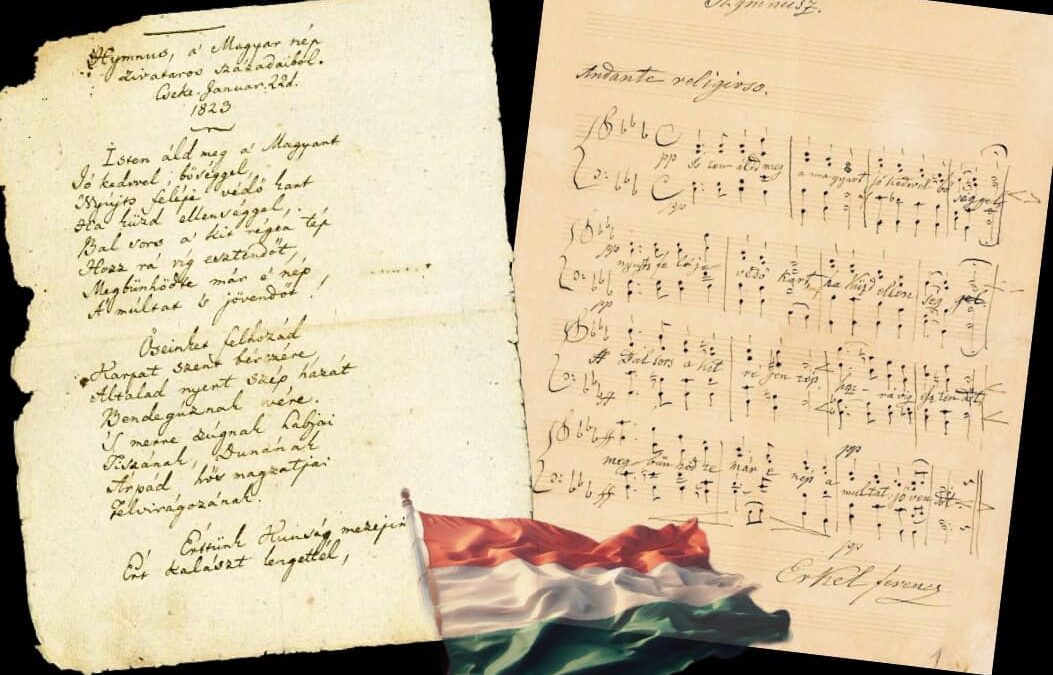 Hymnus, a' Magyar nép
zivataros századaiból.
Cseke. Január. 22d.
1823
Isten áld meg a' Magyart
Jó kedvvel, bőséggel,
Nyújts feléje védő kart
Ha küzd ellenséggel,
Bal sors a' kit régen tép
Hozz rá víg esztendőt,
Megbűnhődte már e' nép
A' múltat 's jövendőt!
Őseinket felhozád
Kárpát szent bérczére,
Általad nyert szép hazát
Bendegúznak vére.
'S merre zúgnak habjai
Tiszának, Dunának
Árpád hős magzatjai
Felvirágozának.
Értünk Kunság mezején
Ért kalászt lengettél,
Hymnusz.
Andante religioso.
pp Is ten áldd meg a magyart jó kedvvel bő séggel
pp
pp nyujts fe lé je védő kart ha küzd ellen ség gel
pp
Bal sors a kit ré gen tép hoz rá víg esz ten dőt
ff
ff meg bűn hőd te már e nép a multat jöven dőt
ff
pp
pp
Erkel ferencz
1